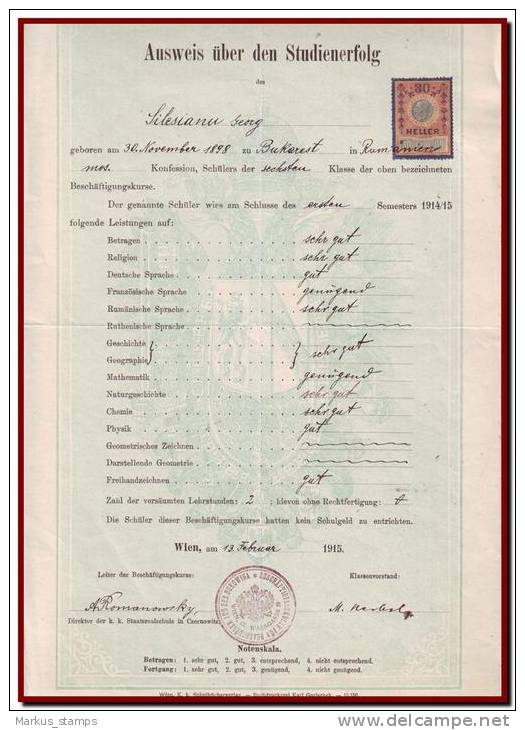 Ausweis über den Studienerfolg
des
Silesianu Georg
30
HELLER
geboren am 30. November 1898 zu Bukarest in Rumänien
mos. Konfession, Schülers der sechsten Klasse der oben bezeichneten
Beschäftigungskurse.
Der genannte Schüler wies am Schlusse des ersten Semesters 1914/15
folgende Leistungen auf:
Betragen sehr gut
Religion sehr gut
Deutsche Sprache gut
Französische Sprache genügend
Rumänische Sprache sehr gut
Ruthenische Sprache
Geschichte
Geographie } } sehr gut
Mathematik genügend
Naturgeschichte sehr gut
Chemie sehr gut
Physik gut
Geometrisches Zeichnen
Darstellende Geometrie
Freihandzeichnen gut
Zahl der versäumten Lehrstunden: 2 ; hievon ohne Rechtfertigung:
Die Schüler dieser Beschäftigungskurse hatten kein Schulgeld zu entrichten.
Wien, am 13. Februar 1915.
Leiter der Beschäftigungskurse: Klassenvorstand:
A. Romanowsky, M.
Direktor der k. k. Staatsrealschule in Czernowitz
Notenskala.
Betragen: 1. sehr gut, 2. gut, 3. entsprechend, 4. nicht entsprechend.
Fortgang: 1. sehr gut, 2. gut, 3. genügend, 4. nicht genügend.
Wien. K. k. Schulbücherverlag. — Buchdruckerei Karl Gorischek.
Markus_stamps
www.delcampe.net